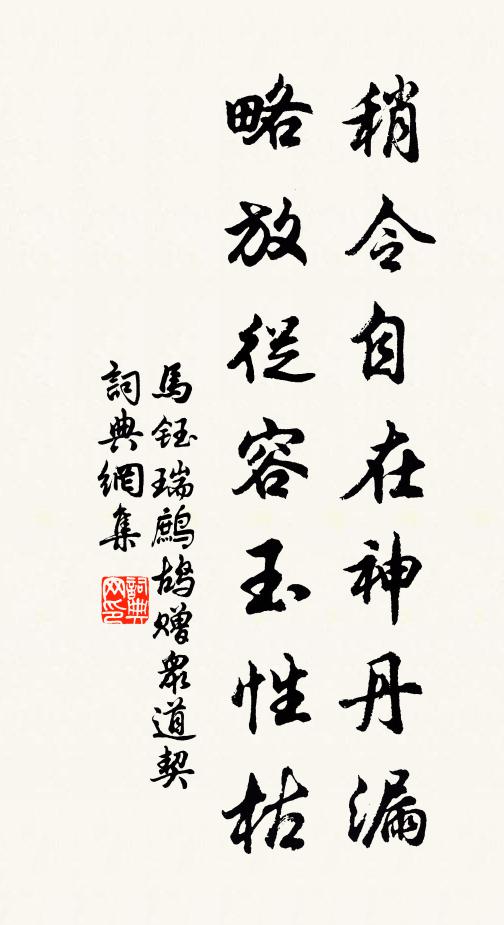 稍令自在神丹漏
略放從容玉性枯
馬鈺瑞鷓鴣贈眾道契
詞典網集
詞典